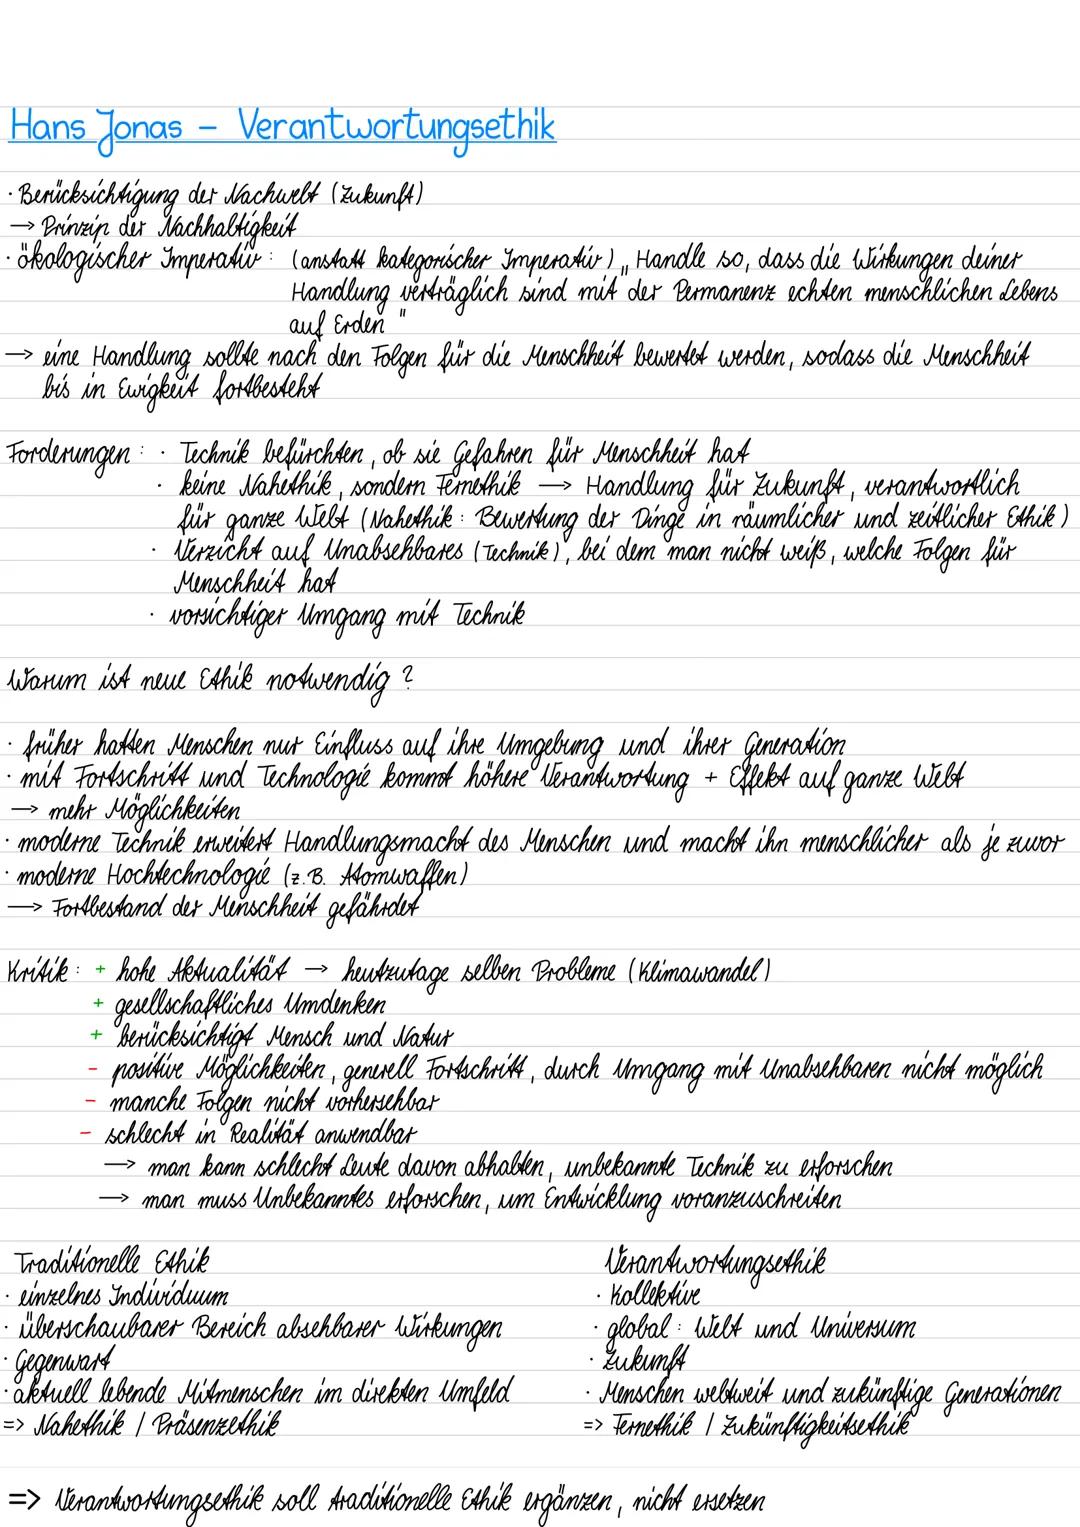 Hans Jonas – Verantwortungsethik
· Berücksichtigung der Nachwelt (Zukunft)
→ Prinzip der Nachhaltigkeit
· ökologischer Imperativ : (anstatt kategorischer Imperativ) „Handle so, dass die Wirkungen deiner
Handlung verträglich sind mit der Permanenz echten menschlichen Lebens
auf Erden "
→ eine Handlung sollte nach den Folgen für die Menschheit bewertet werden, sodass die Menschheit
bis in Ewigkeit fortbesteht
Forderungen : · Technik befürchten, ob sie Gefahren für Menschheit hat
· keine Nahethik, sondern Fernethik → Handlung für Zukunft, verantwortlich
für ganze Welt (Nahethik : Bewertung der Dinge in räumlicher und zeitlicher Ethik)
· Verzicht auf Unabsehbares (Technik), bei dem man nicht weiß, welche Folgen für
Menschheit hat
· vorsichtiger Umgang mit Technik
Warum ist neue Ethik notwendig ?
· früher hatten Menschen nur Einfluss auf ihre Umgebung und ihrer Generation
· mit Fortschritt und Technologie kommt höhere Verantwortung + Effekt auf ganze Welt
→ mehr Möglichkeiten
· moderne Technik erweitert Handlungsmacht des Menschen und macht ihn menschlicher als je zuvor
· moderne Hochtechnologie (z.B. Atomwaffen)
→ Fortbestand der Menschheit gefährdet
Kritik : + hohe Aktualität → heutzutage selben Probleme (Klimawandel)
+ gesellschaftliches Umdenken
+ berücksichtigt Mensch und Natur
- positive Möglichkeiten, generell Fortschritt, durch Umgang mit Unabsehbaren nicht möglich
- manche Folgen nicht vorhersehbar
- schlecht in Realität anwendbar
→ man kann schlecht Leute davon abhalten, unbekannte Technik zu erforschen
→ man muss Unbekanntes erforschen, um Entwicklung voranzuschreiten
Traditionelle Ethik
· einzelnes Individuum
· überschaubarer Bereich absehbarer Wirkungen
· Gegenwart
· aktuell lebende Mitmenschen im direkten Umfeld
=> Nahethik / Präsenzethik
Verantwortungsethik
· Kollektive
· global : Welt und Universum
· Zukunft
· Menschen weltweit und zukünftige Generationen
=> Fernethik / Zukünftigkeitsethik
=> Verantwortungsethik soll traditionelle Ethik ergänzen, nicht ersetzen